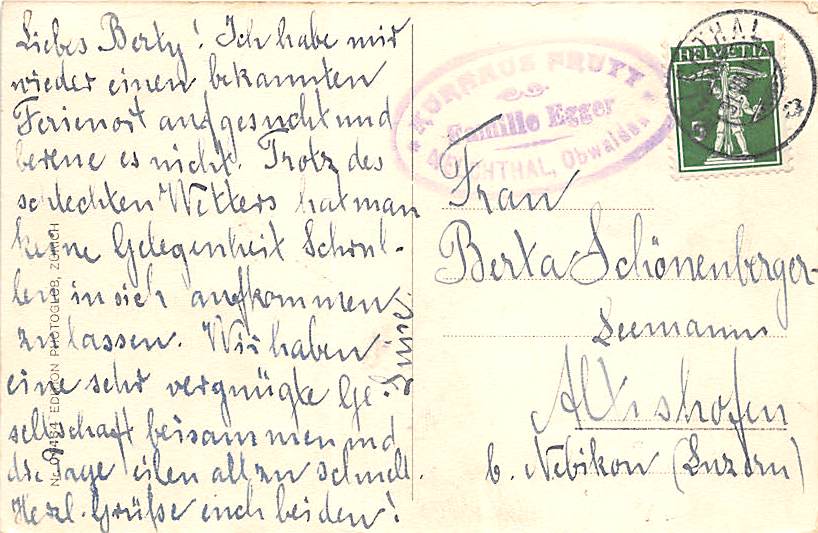 Liebes Berty! Ich habe mir
wieder einen bekannten
Ferienort aufgesucht und
bereue es nicht. Trotz des
schlechten Wetters hat man
keine Gelegenheit Schrul-
len in sich aufkommen
zu lassen. Wir haben
eine sehr vergnügte Ge-
sellschaft beisammen und
die Tage eilen allzu schnell.
Herzl. Grüße euch beiden!
EDITION PHOTOGLOB, ZÜRICH
KURHAUS FRUTT
Familie Egger
MELCHTHAL, Obwalden
THAL
HELVETIA
5
Frau
Berta Schönenberger-
Seemann
Altishofen
b. Nebikon (Luzern)